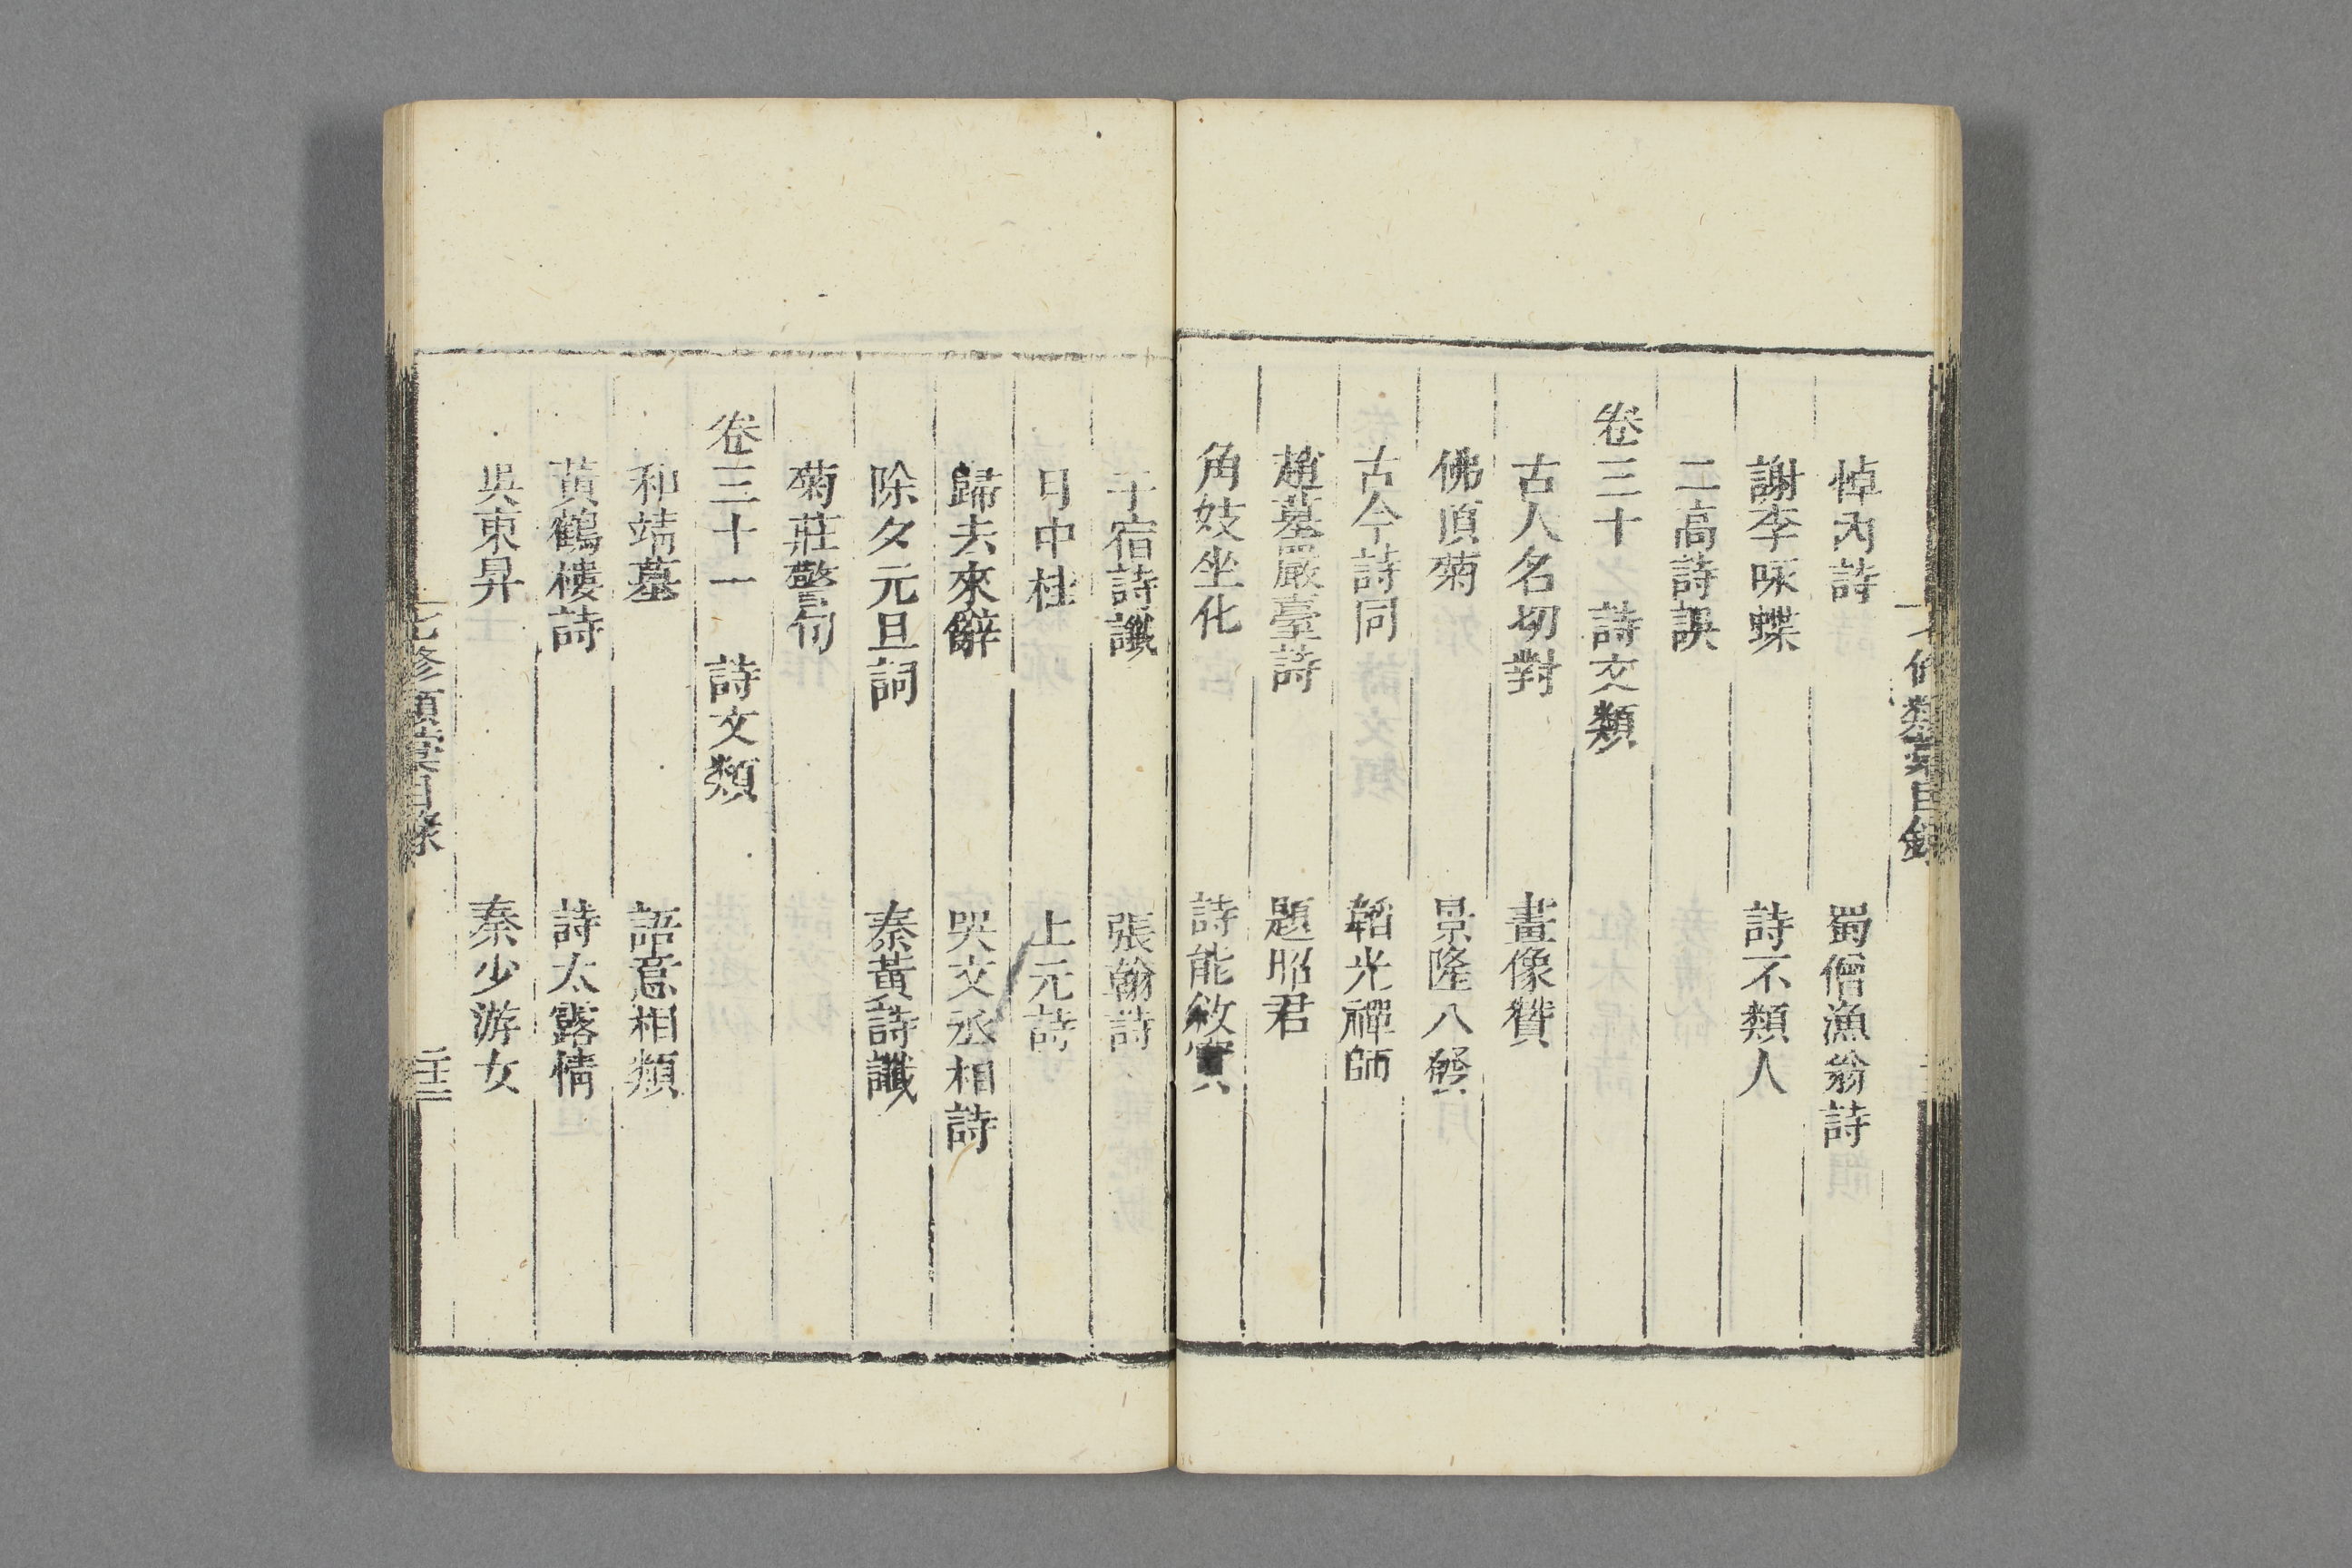 悼內詩　蜀僧漁翁詩
謝李咏蝶　詩不類人
二高詩誤
卷三十　詩文類
古人名切對　畫像贊
佛頂菊　景隆八
古今詩同　韜光禪師
趙墓嚴臺詩　題昭君
角妓坐化　詩能敘實
子宿詩讖　張翰詩
月中桂　上元詩
歸去來辭　哭文丞相詩
除夕元旦詞　秦黃詩讖
菊莊警句
卷三十一　詩文類
和靖墓　語意相類
黃鶴樓詩　詩太露情
吳東昇　秦少游女
七修類稾目錄